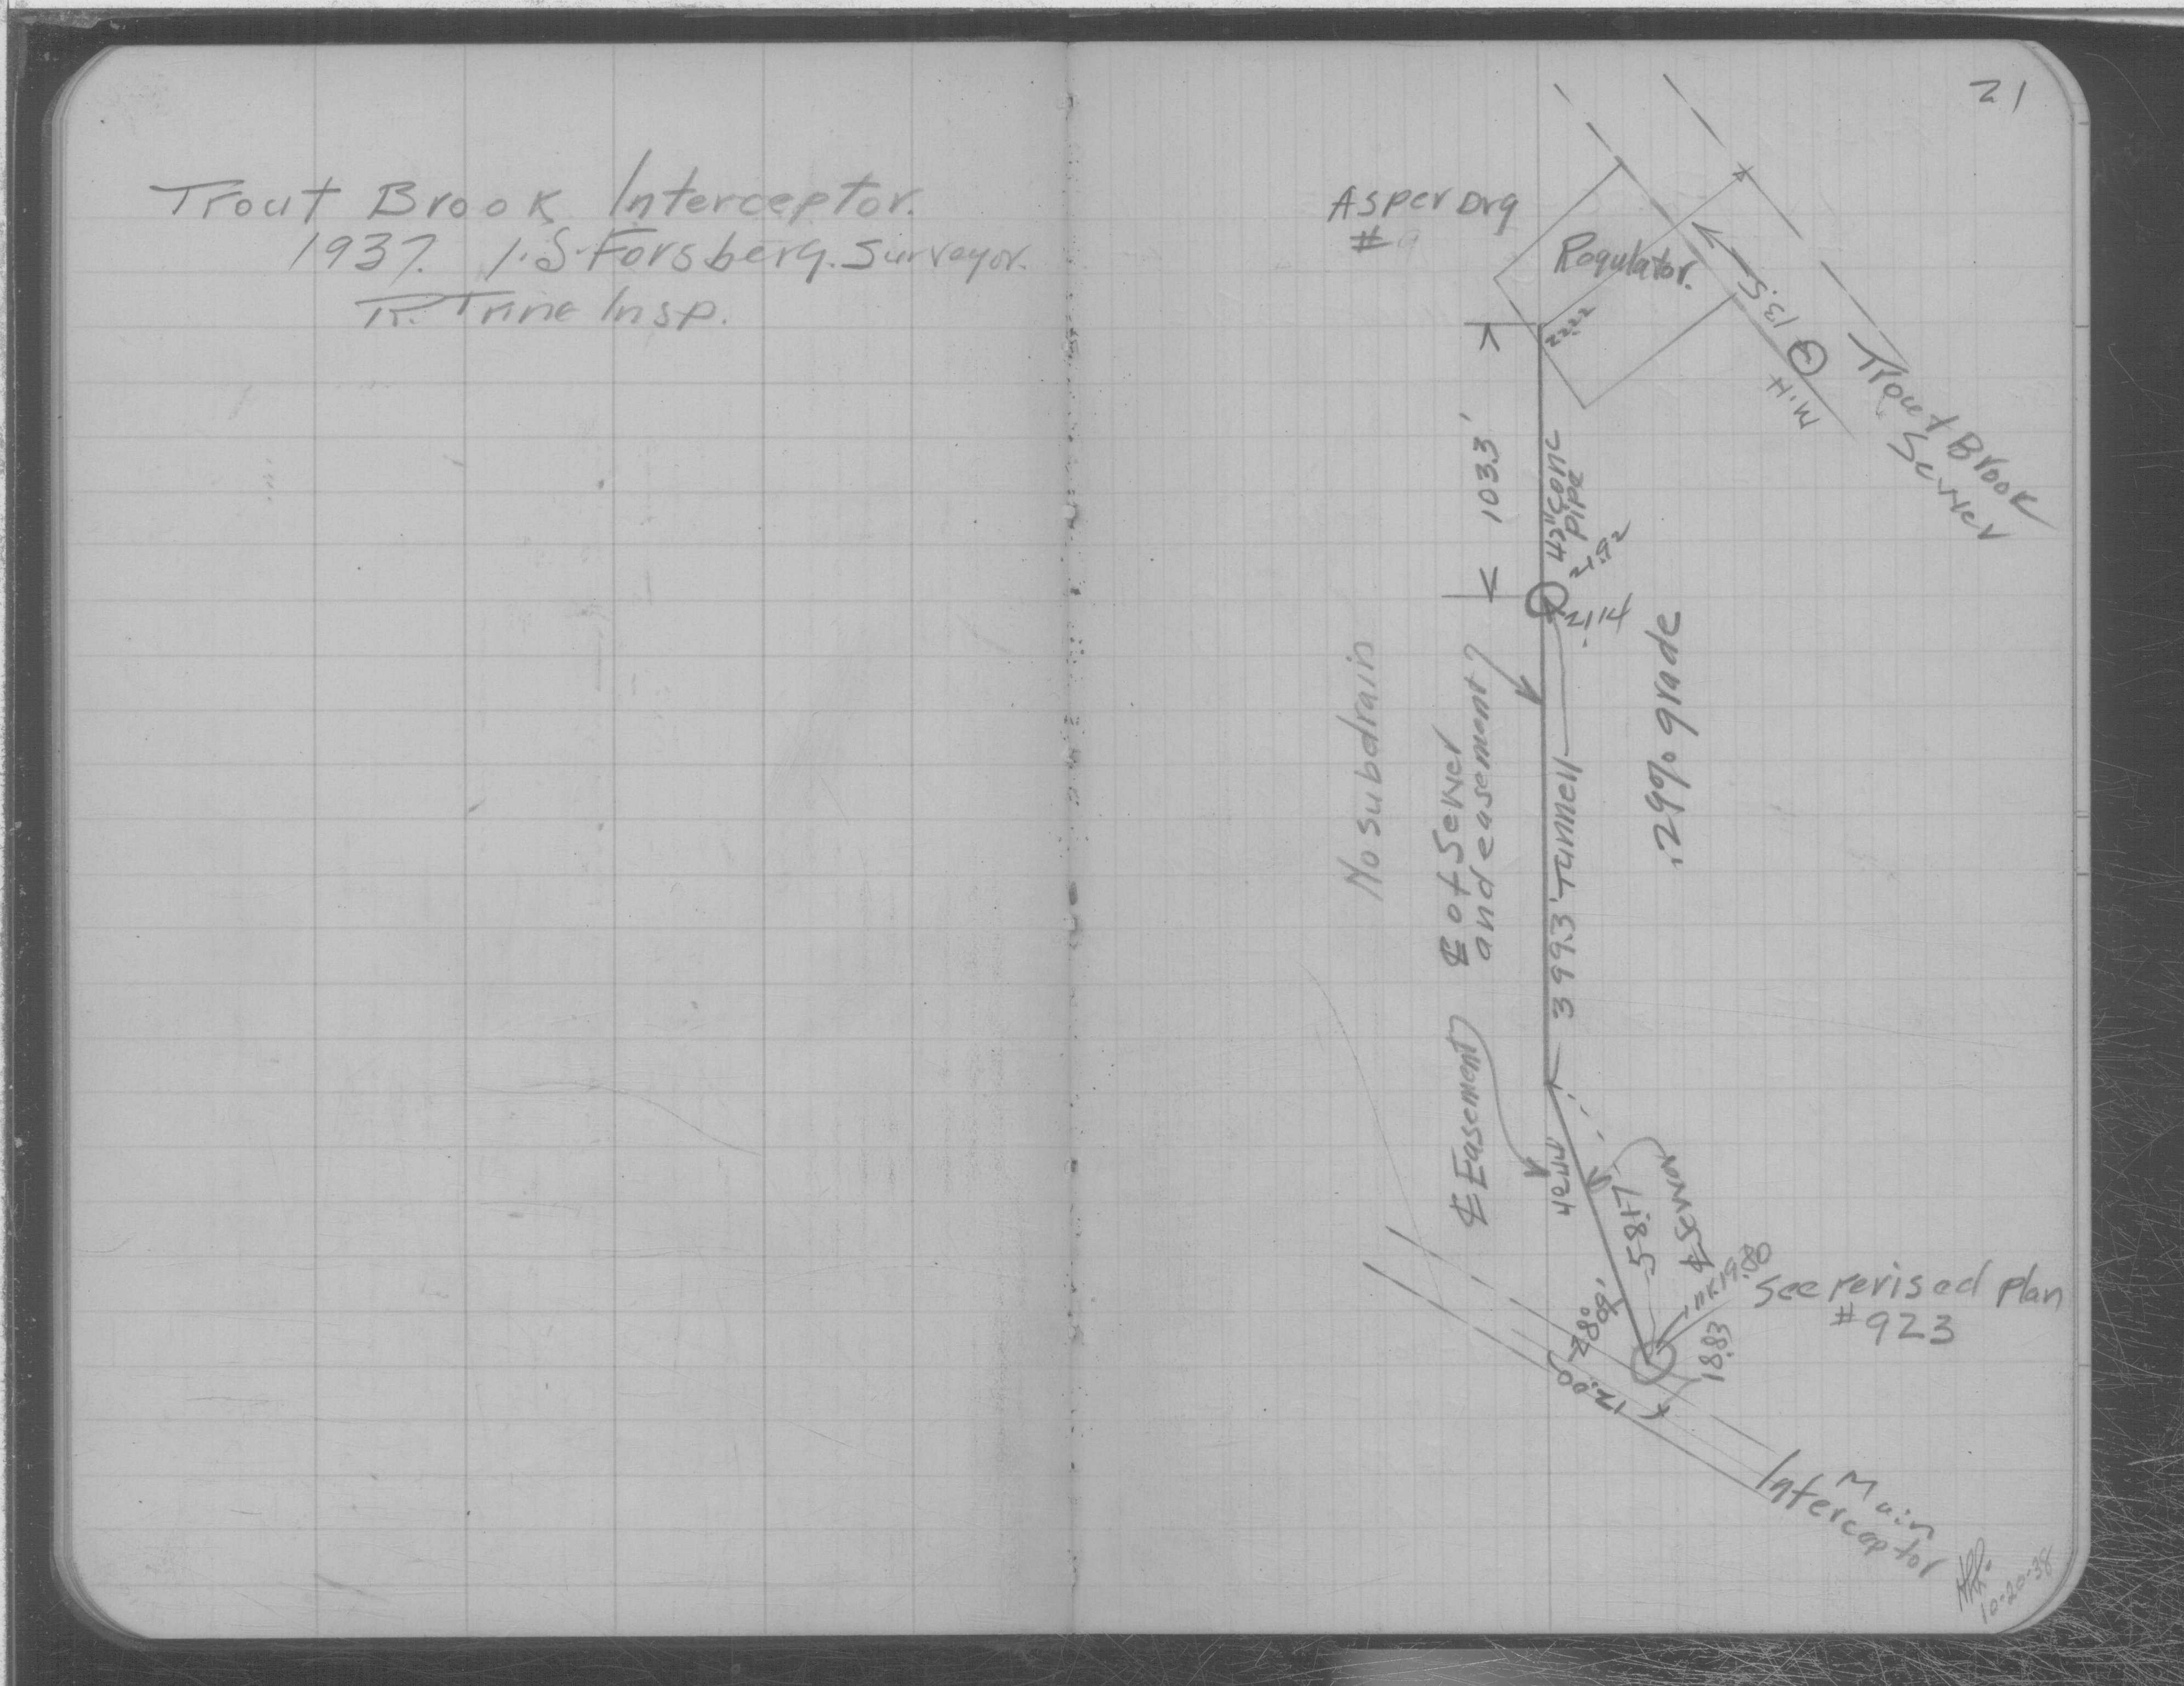 Trout Brook Interceptor.
1937. I.S. Forsberg. Surveyor.
R. Trine Insp.
21
Asper Drg
#9
Regulator.
22.22
13.5
M.H
Trout Brook
Sewer
103.3'
42" conc
pipe
21.92
21.14
No subdrain
℄ of Sewer
and easement
399.3' Tunnell
.29% grade
℄ Easement
58.17
℄ Sewer
28° 09'
19.80
18.83
12.00
see revised plan
#923
Main
Interceptor
10-20-38